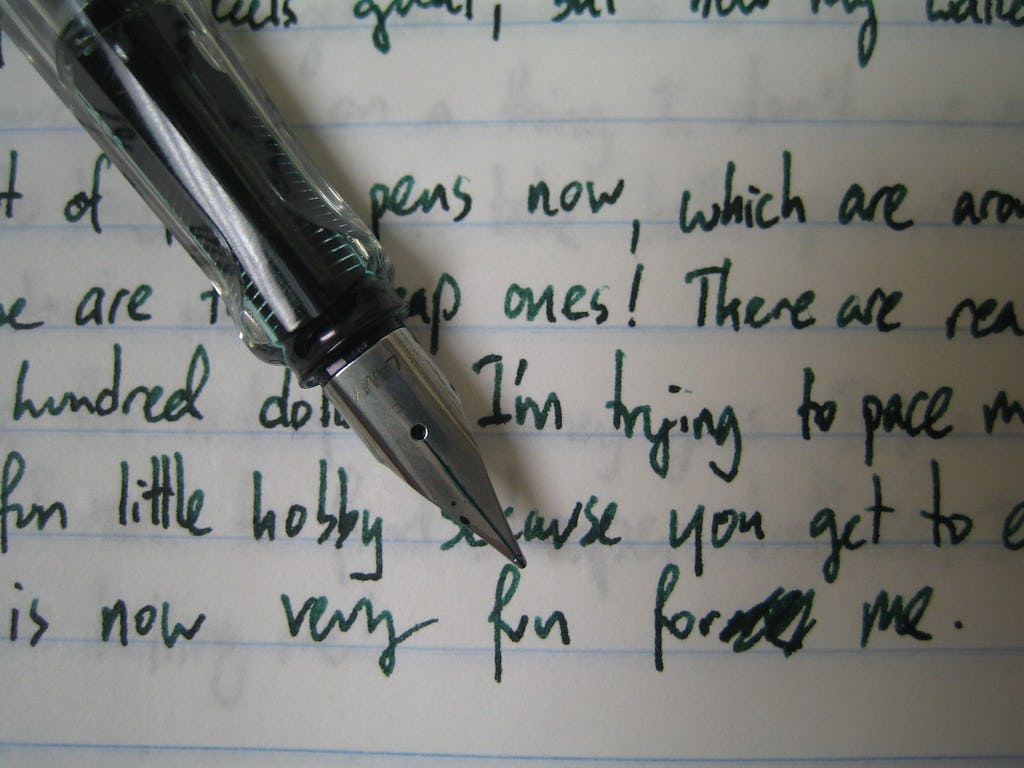 feels great, but now my
t of pens now, which are
are ones! There are
hundred I'm trying to pace
fun little hobby because you get to
is now very fun for me.
Lamy